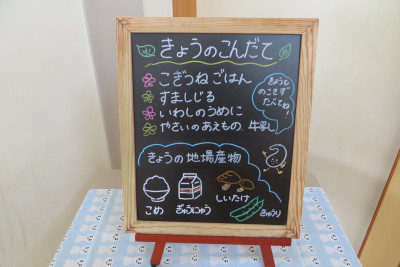 きょうのこんだて
こぎつねごはん
すましじる
いわしのうめに
やさいのあえもの 牛乳
きょうも
のこさず
たべてね!
きょうの地場産物
こめ
ぎゅうにゅう
しいたけ
きゅうり